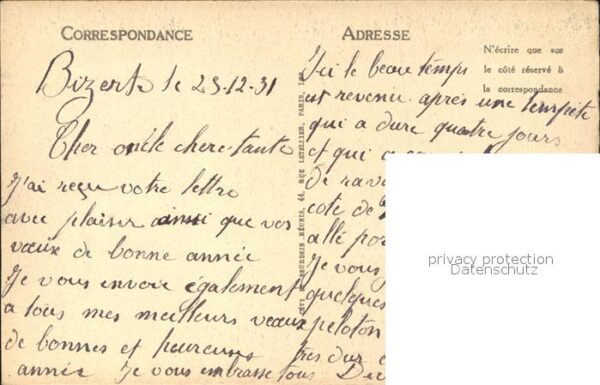 CORRESPONDANCE
Bizerte le 23-12-31
Cher oncle chere tante
J'ai reçu votre lettre
avec plaisir ainsi que vos
vœux de bonne année
Je vous envoie également
a tous mes meilleurs vœux
de bonnes et heureuses
année Je vous embrasse tous
ADRESSE
N'écrire que sur
le côté réservé à
la correspondance
Ici le beau temps
est revenu après une tempête
qui a dure quatre jours
et qui a
de rav
cote de
allé po
Je vous
quelques
peloton
très dur
RÉUNIS, 44, RUE LETELLIER, PARIS
privacy protection
Datenschutz